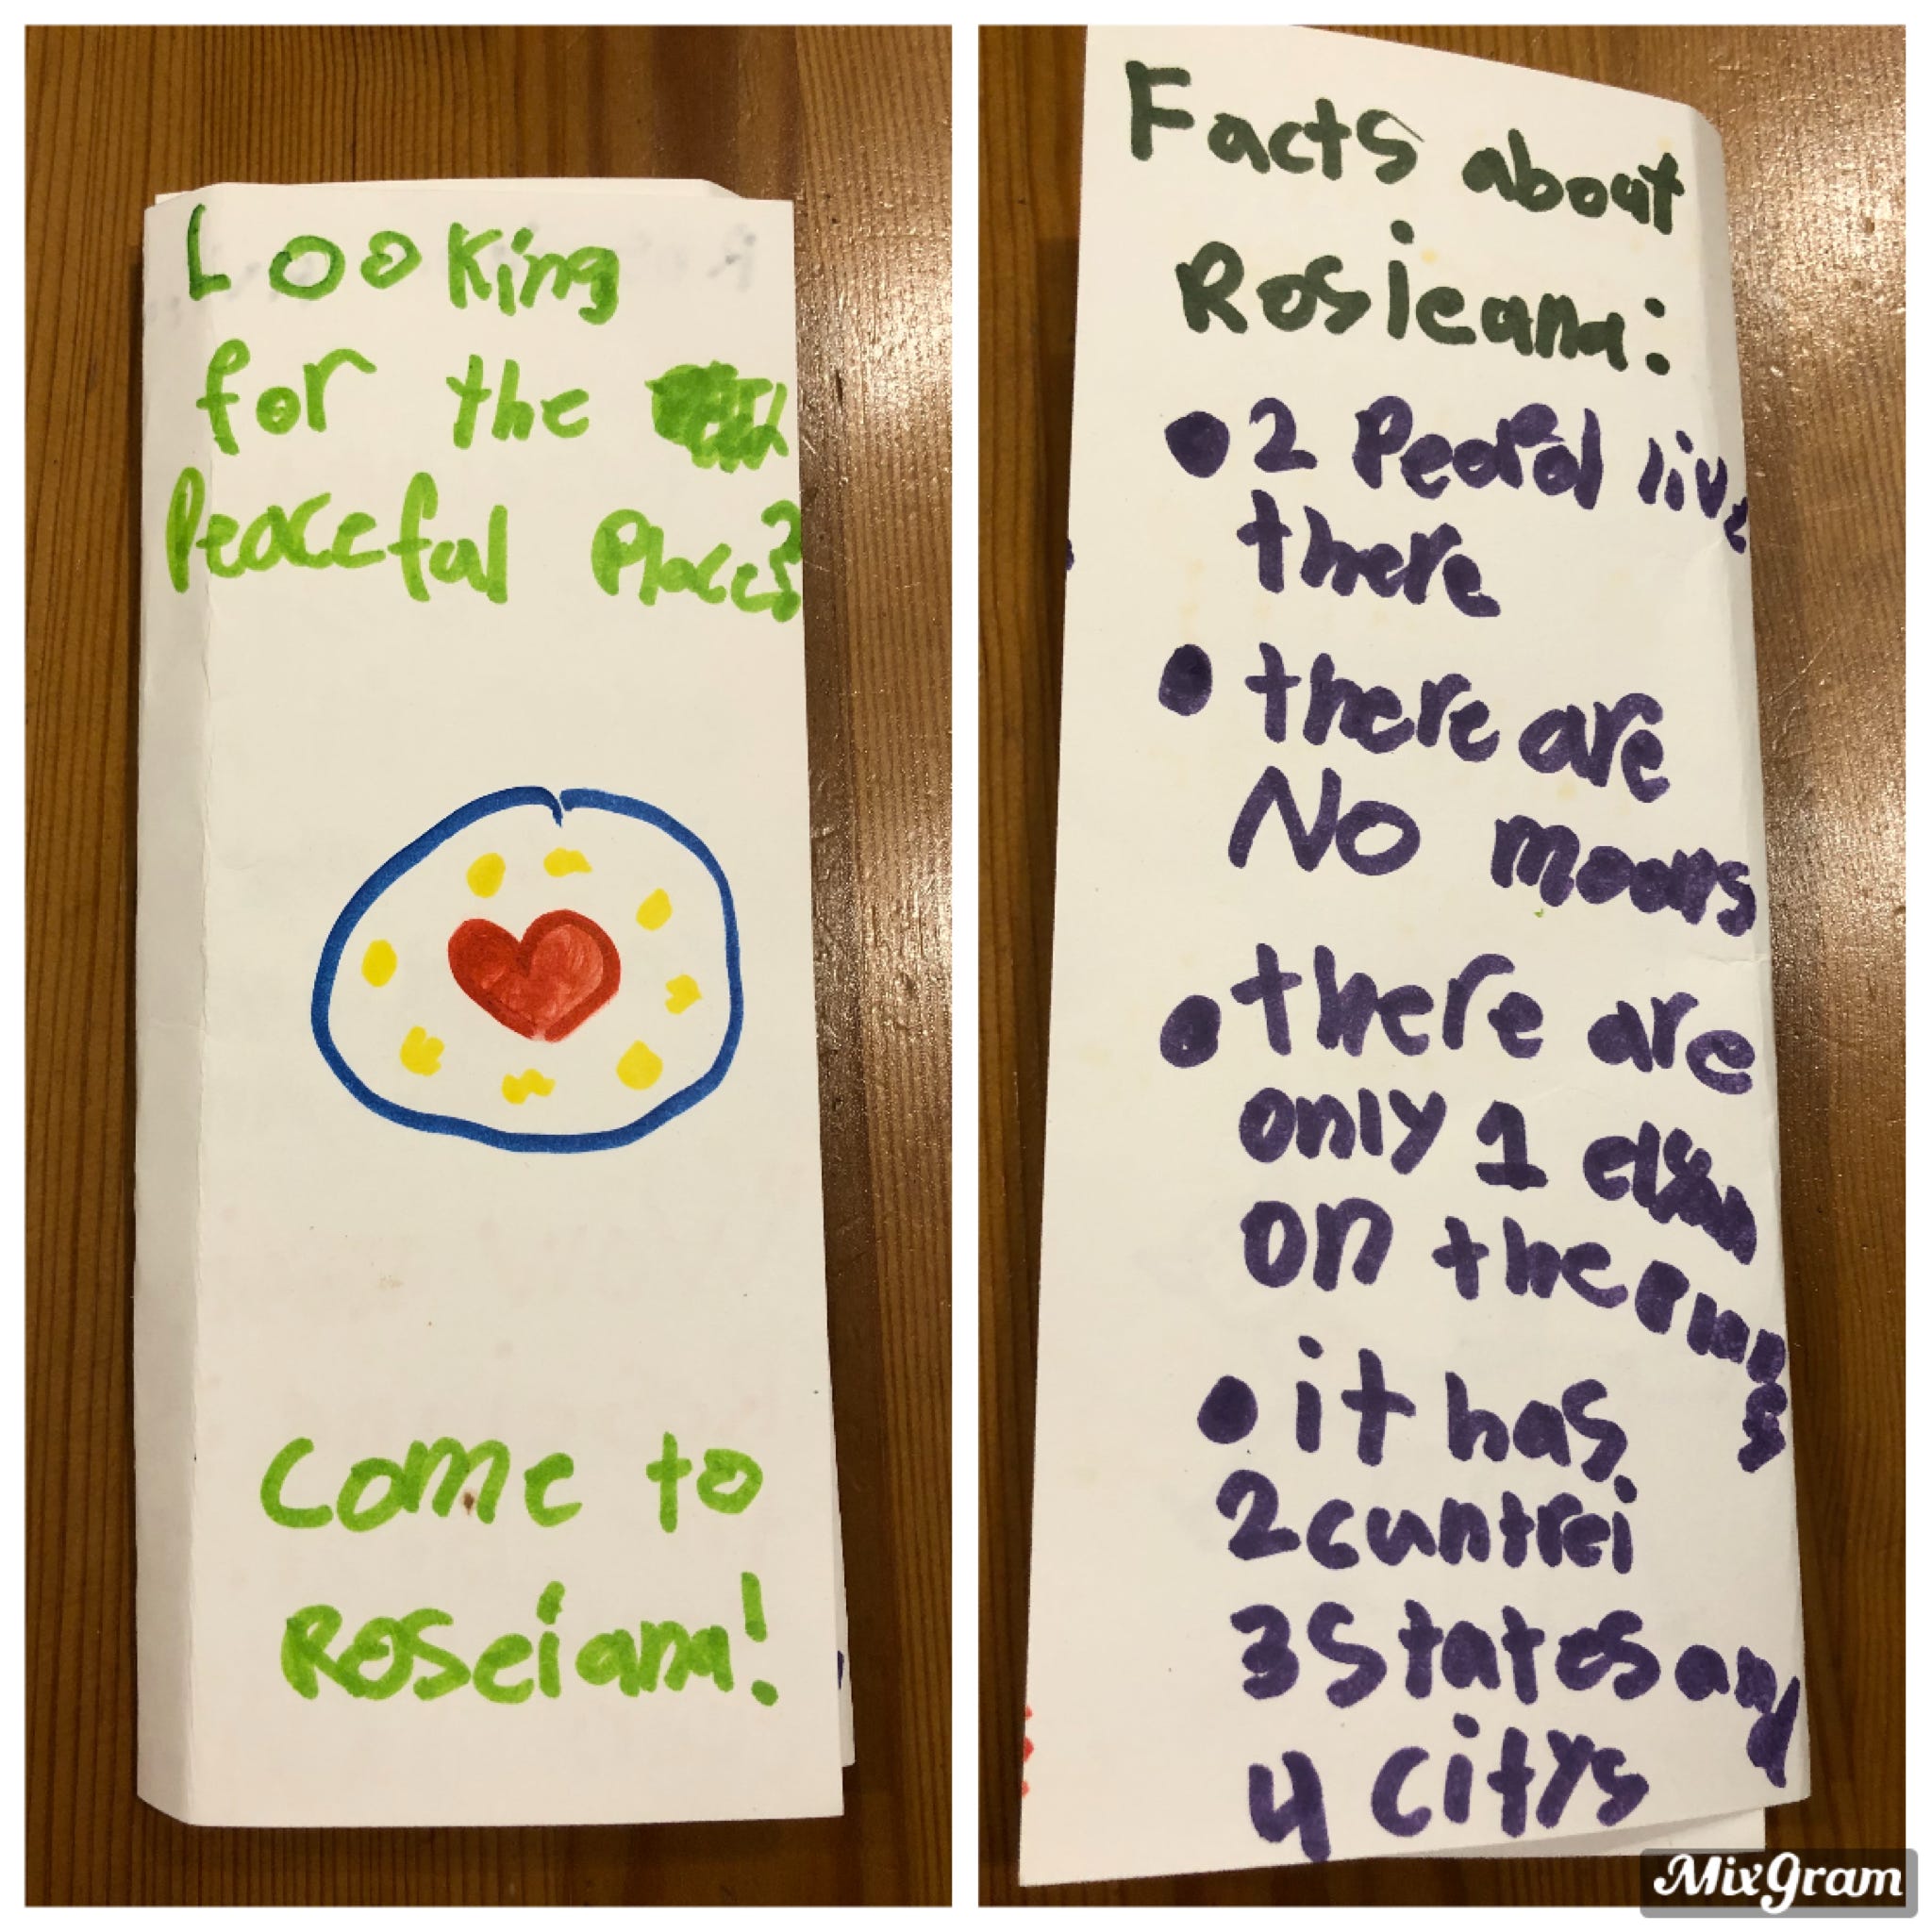 Looking
for the
Peaceful Places?
Come to
Roseiana!
Facts about
Rosieana:
• 2 live
there
• there are
No moons
• there are
only 1
on the
• it has
2 cuntrei
3 states and
4 citys
MixGram